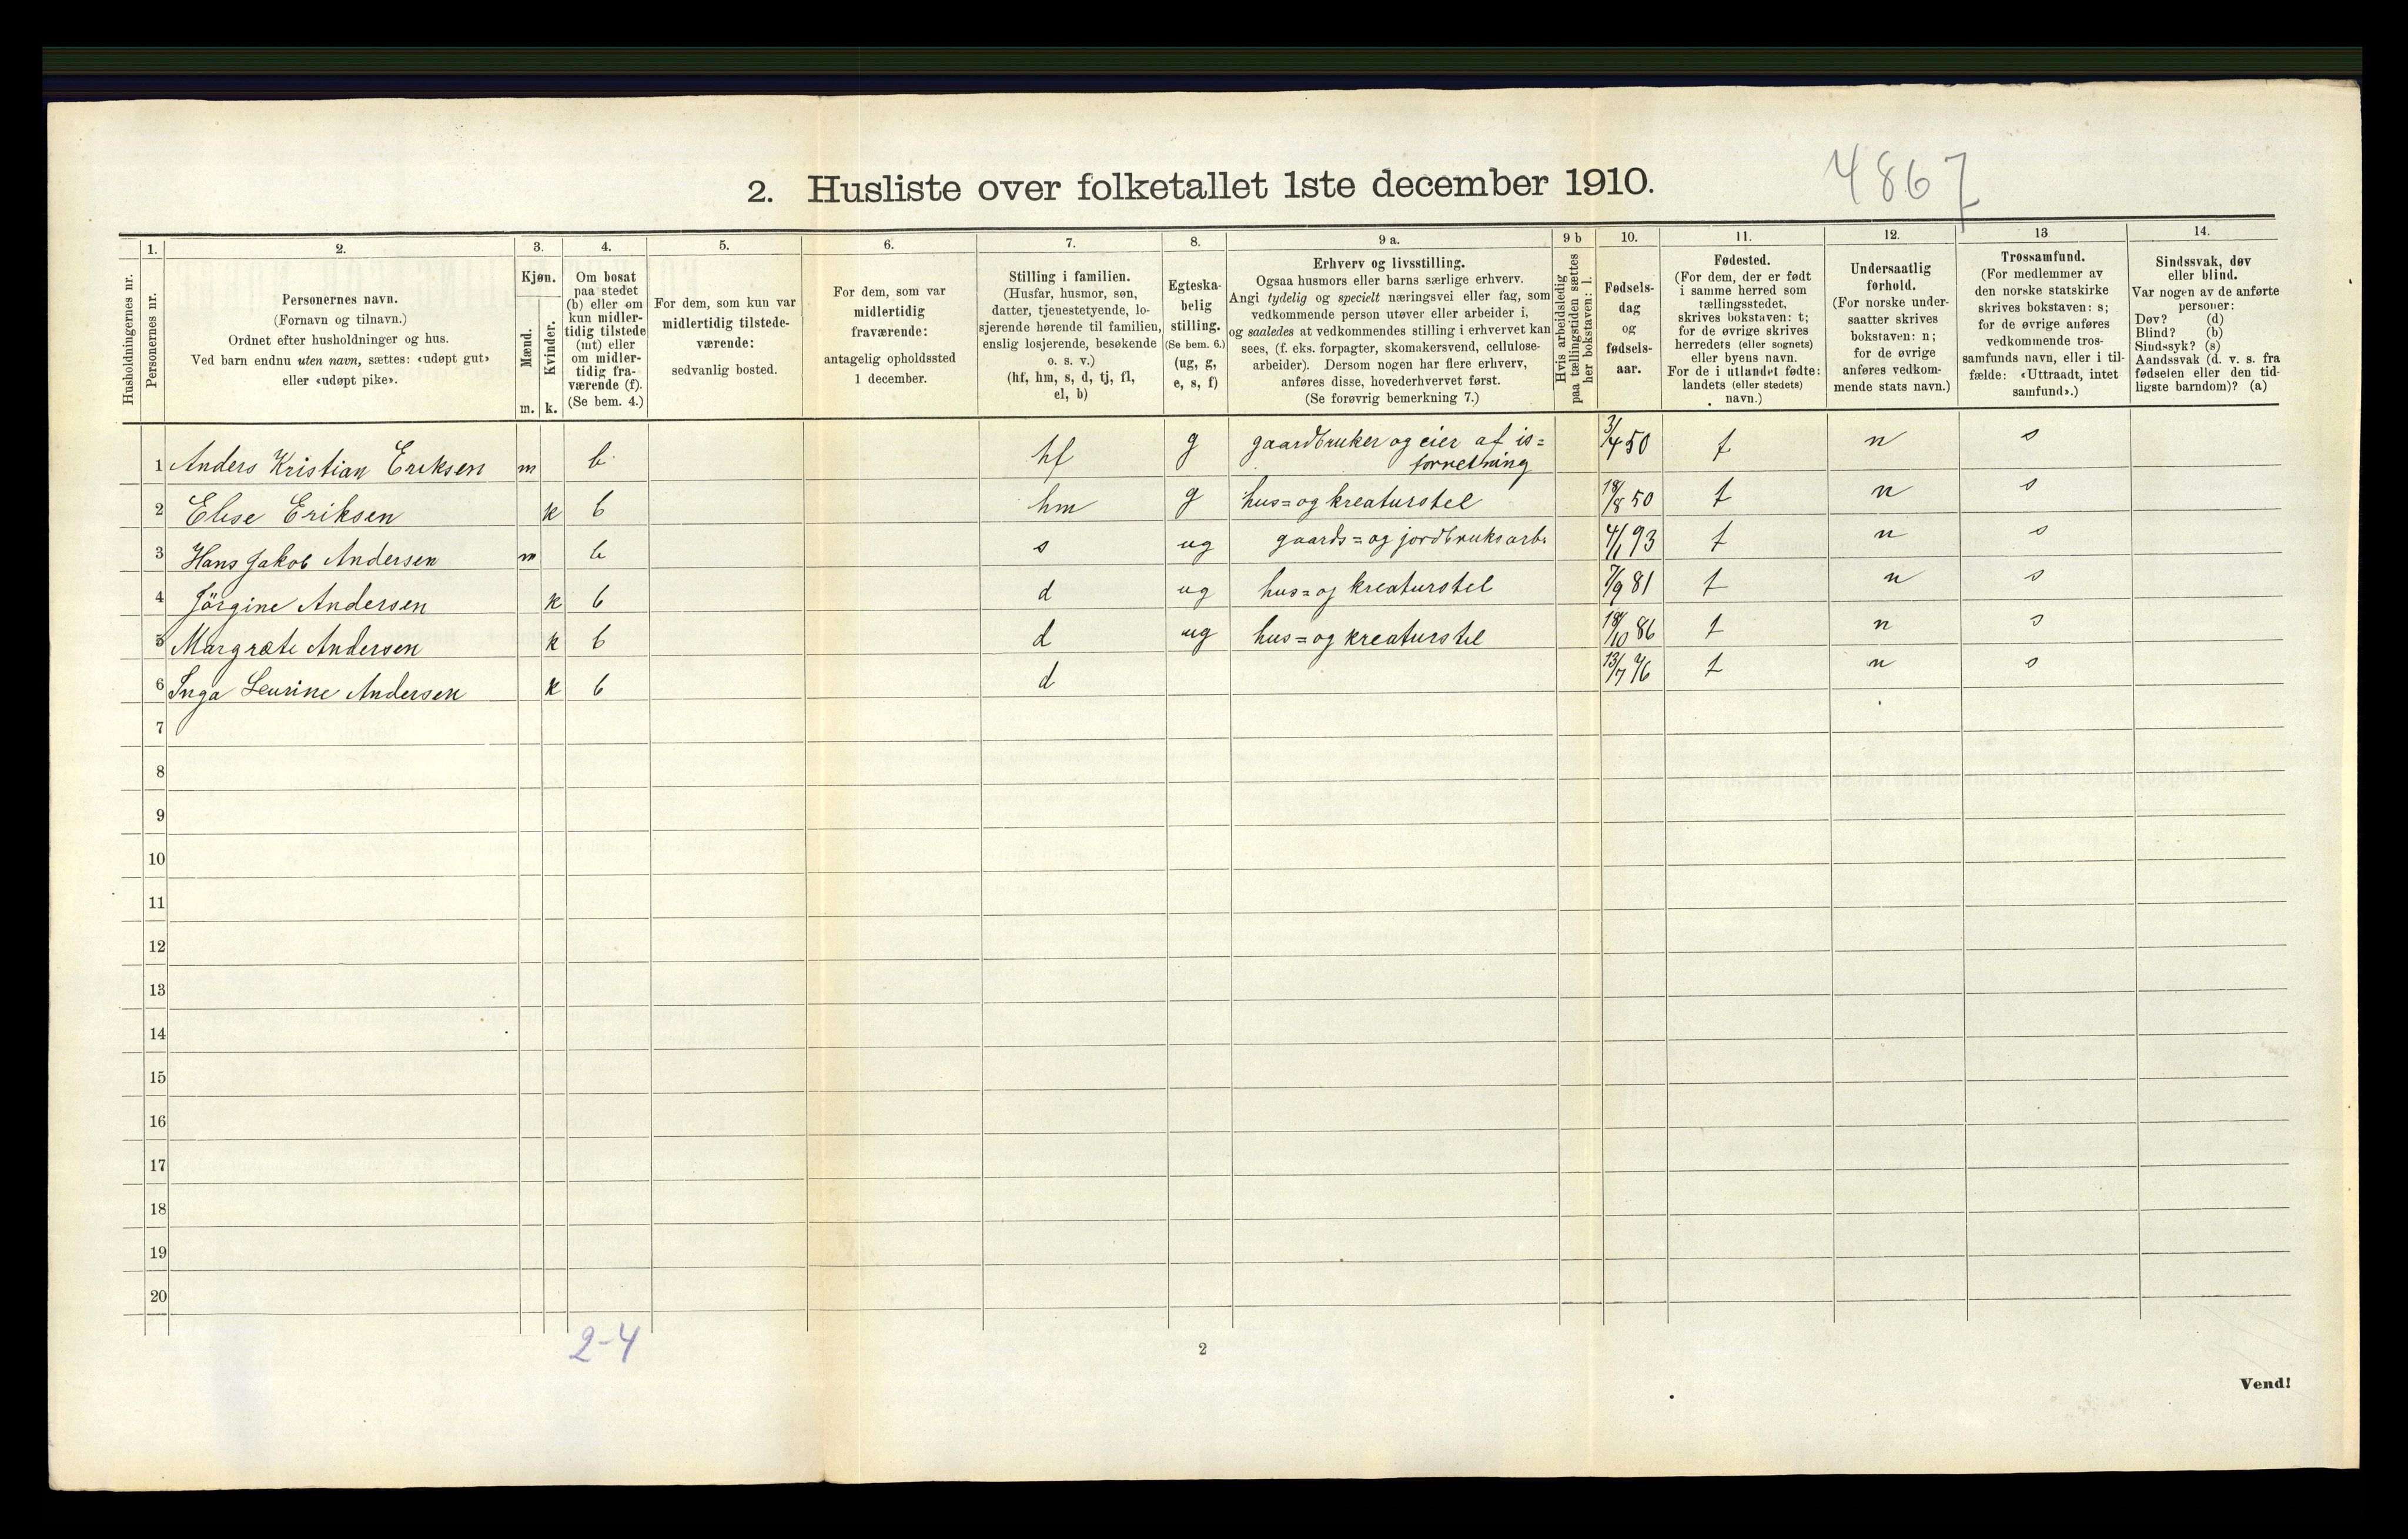 4867
2. Husliste over folketallet 1ste december 1910.
Husholdningernes nr.
1.
Personernes nr.
2.
Personernes navn.
(Fornavn og tilnavn.)
Ordnet efter husholdninger og hus.
Ved barn endnu uten navn, sættes: «udøpt gut»
eller «udøpt pike».
3.
Kjøn.
Mænd.
m.
Kvinder.
k.
4.
Om bosat
paa stedet
(b) eller om
kun midler-
tidig tilstede
(mt) eller
om midler-
tidig fra-
værende (f).
(Se bem. 4.)
5.
For dem, som kun var
midlertidig tilstede-
værende:
sedvanlig bosted.
6.
For dem, som var
midlertidig
fraværende:
antagelig opholdssted
1 december.
7.
Stilling i familien.
(Husfar, husmor, søn,
datter, tjenestetyende, lo-
sjerende hørende til familien,
enslig losjerende, besøkende
o. s. v.)
(hf, hm, s, d, tj, fl,
el, b)
8.
Egteska-
belig
stilling.
(Se bem. 6.)
(ug, g,
e, s, f)
9 a.
Erhverv og livsstilling.
Ogsaa husmors eller barns særlige erhverv.
Angi tydelig og specielt næringsvei eller fag, som
vedkommende person utøver eller arbeider i,
og saaledes at vedkommendes stilling i erhvervet kan
sees, (f. eks. forpagter, skomakersvend, cellulose-
arbeider). Dersom nogen har flere erhverv,
anføres disse, hovederhvervet først.
(Se forøvrig bemerkning 7.)
9 b
Hvis arbeidsledig
paa tællingstiden sættes
her bokstaven: l.
10.
Fødsels-
dag
og
fødsels-
aar.
11.
Fødested.
(For dem, der er født
i samme herred som
tællingsstedet,
skrives bokstaven: t;
for de øvrige skrives
herredets (eller sognets)
eller byens navn.
For de i utlandet fødte:
landets (eller stedets)
navn.)
12.
Undersaatlig
forhold.
(For norske under-
saatter skrives
bokstaven: n;
for de øvrige
anføres vedkom-
mende stats navn.)
13
Trossamfund.
(For medlemmer av
den norske statskirke
skrives bokstaven: s;
for de øvrige anføres
vedkommende tros-
samfunds navn, eller i til-
fælde: «Uttraadt, intet
samfund».)
14.
Sindssvak, døv
eller blind.
Var nogen av de anførte
personer:
Døv? (d)
Blind? (b)
Sindssyk? (s)
Aandssvak (d. v. s. fra
fødselen eller den tid-
ligste barndom)? (a)
1 Anders Kristian Eriksen m b hf g gaardbruker og eier af is=
forretning 3/4 50 t n s
2 Elise Eriksen k b hm g hus= og kreaturstel 18/8 50 t n s
3 Hans Jakob Andersen m b s ug gaards= og jordbruksarb. 4/1 93 t n s
4 Jörgine Andersen k b d ug hus= og kreaturstel 7/9 81 t n s
5 Margræte Andersen k b d ug hus= og kreaturstel 18/10 86 t n s
6 Inga Leurine Andersen k b d 13/7 76 t n s
7
8
9
10
11
12
13
14
15
16
17
18
19
20
2-4
2
Vend!